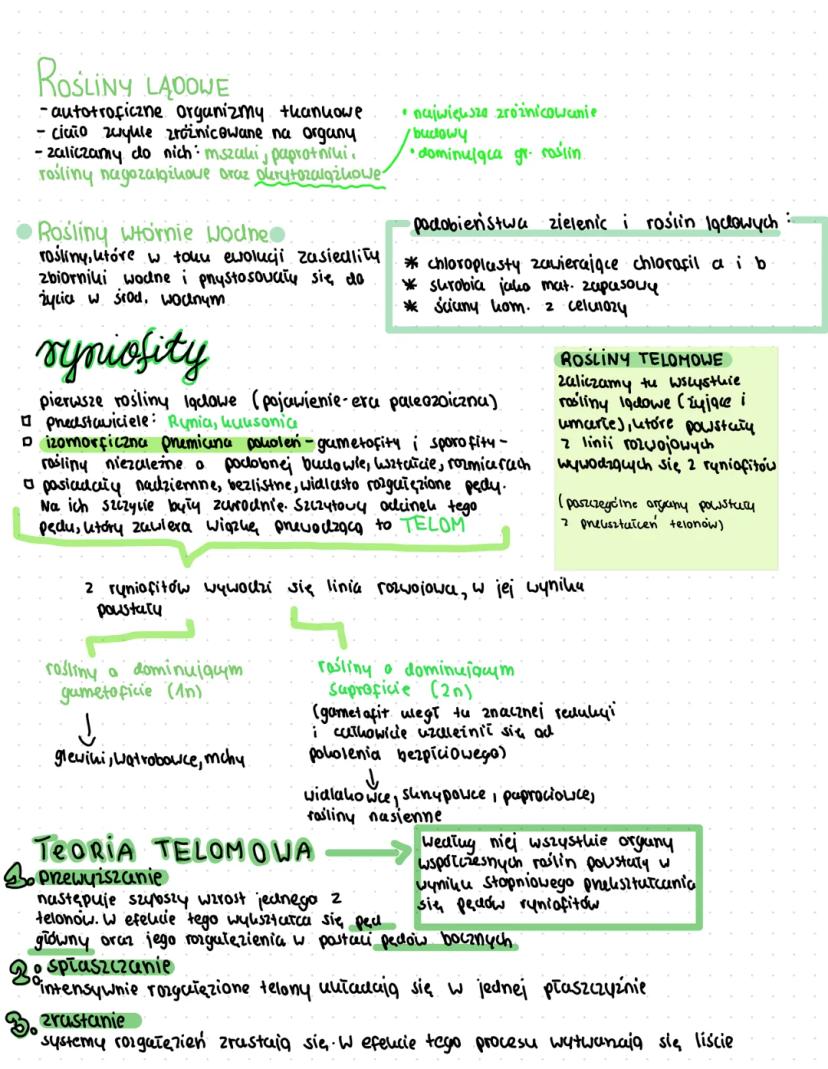 ROŚLINY LĄDOWE
- autotroficzne organizmy tkankowe
- ciało zwykle zróżnicowane na organy
- zaliczamy do nich: mszaki, paprotniki,
rośliny nagozalążkowe oraz okrytozalążkowe
• największe zróżnicowanie
budowy
• dominująca gr. roślin
Rośliny wtórnie wodne
rośliny, które w toku ewolucji zasiedliły
zbiorniki wodne i przystosowały się do
życia w środ. wodnym
podobieństwa zielenic i roślin lądowych:
* chloroplasty zawierające chlorofil a i b
* skrobia jako mat. zapasowy
* ściany kom. z celulozy
ryniofity
pierwsze rośliny lądowe (pojawienie-era paleozoiczna)
□ przedstawiciele: Rynia, kuksonia
□ izomorficzna przemiana pokoleń - gametofity i sporofity -
rośliny niezależne o podobnej budowie, kształcie, rozmiarach
□ posiadały nadziemne, bezlistne, widlasto rozgałęzione pędy.
Na ich szczycie były zarodnie. Szczytowy odcinek tego
pędu, który zawiera wiązkę przewodzącą to TELOM
ROŚLINY TELOMOWE
zaliczamy tu wszystkie
rośliny lądowe (żyjące i
umarłe), które powstały
z linii rozwojowych
wywodzących się z ryniofitów
(poszczególne organy powstały
z przekształceń telonów)
z ryniofitów wywodzi się linia rozwojowa, w jej wyniku
powstały
rośliny o dominującym
gametoficie (1n)
glewiki, wątrobowce, mchy
rośliny o dominującym
saproficie (2n)
(gametofit uległ tu znacznej redukcji
i całkowicie uzależnił się od
pokolenia bezpłciowego)
widłakowce, skrzypowce, paprociowce,
rośliny nasienne
TEORIA TELOMOWA
według niej wszystkie organy
współczesnych roślin powstały w
wyniku stopniowego przekształcania
się pędów ryniofitów
1. przewyższanie
następuje szybszy wzrost jednego z
telonów. W efekcie tego wykształca się pęd
główny oraz jego rozgałęzienia w postaci pędów bocznych
2. spłaszczanie
intensywnie rozgałęzione telony układają się w jednej płaszczyźnie
3. zrastanie
systemy rozgałęzień zrastają się. W efekcie tego procesu wytwarzają się liście